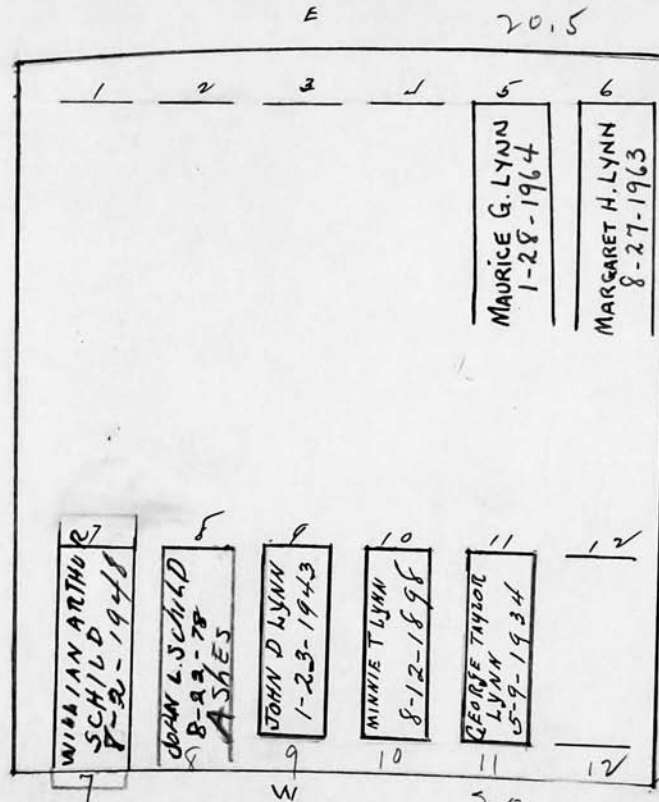 E
20.5
1 2 3 4 5 6
MAURICE G. LYNN
1-28-1964
MARGARET H. LYNN
8-27-1963
7 8 9 10 11 12
WILLIAN ARTHUR
SCHILD
8-2-1948
8-22-78
ASHES
JOHN D LYNN
1-23-1943
MINNIE T LYNN
8-12-1898
GEORGE TAYLOR
LYNN
5-9-1934
7 8 9 10 11 12
W